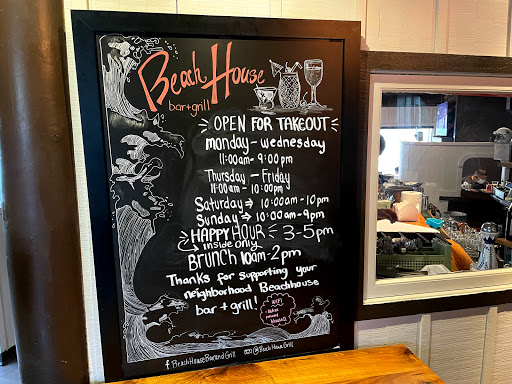 Beach House
bar + grill
OPEN FOR TAKEOUT
monday - wednesday
11:00am - 9:00pm
Thursday - Friday
11:00am - 10:00pm
Saturday → 10:00am - 10pm
Sunday → 10:00am - 9pm
HAPPY HOUR 3-5pm
→ inside only
BRUNCH 10am - 2pm
Thanks for supporting your
neighborhood Beachhouse
bar + grill!
BeachHouseBarandGrill